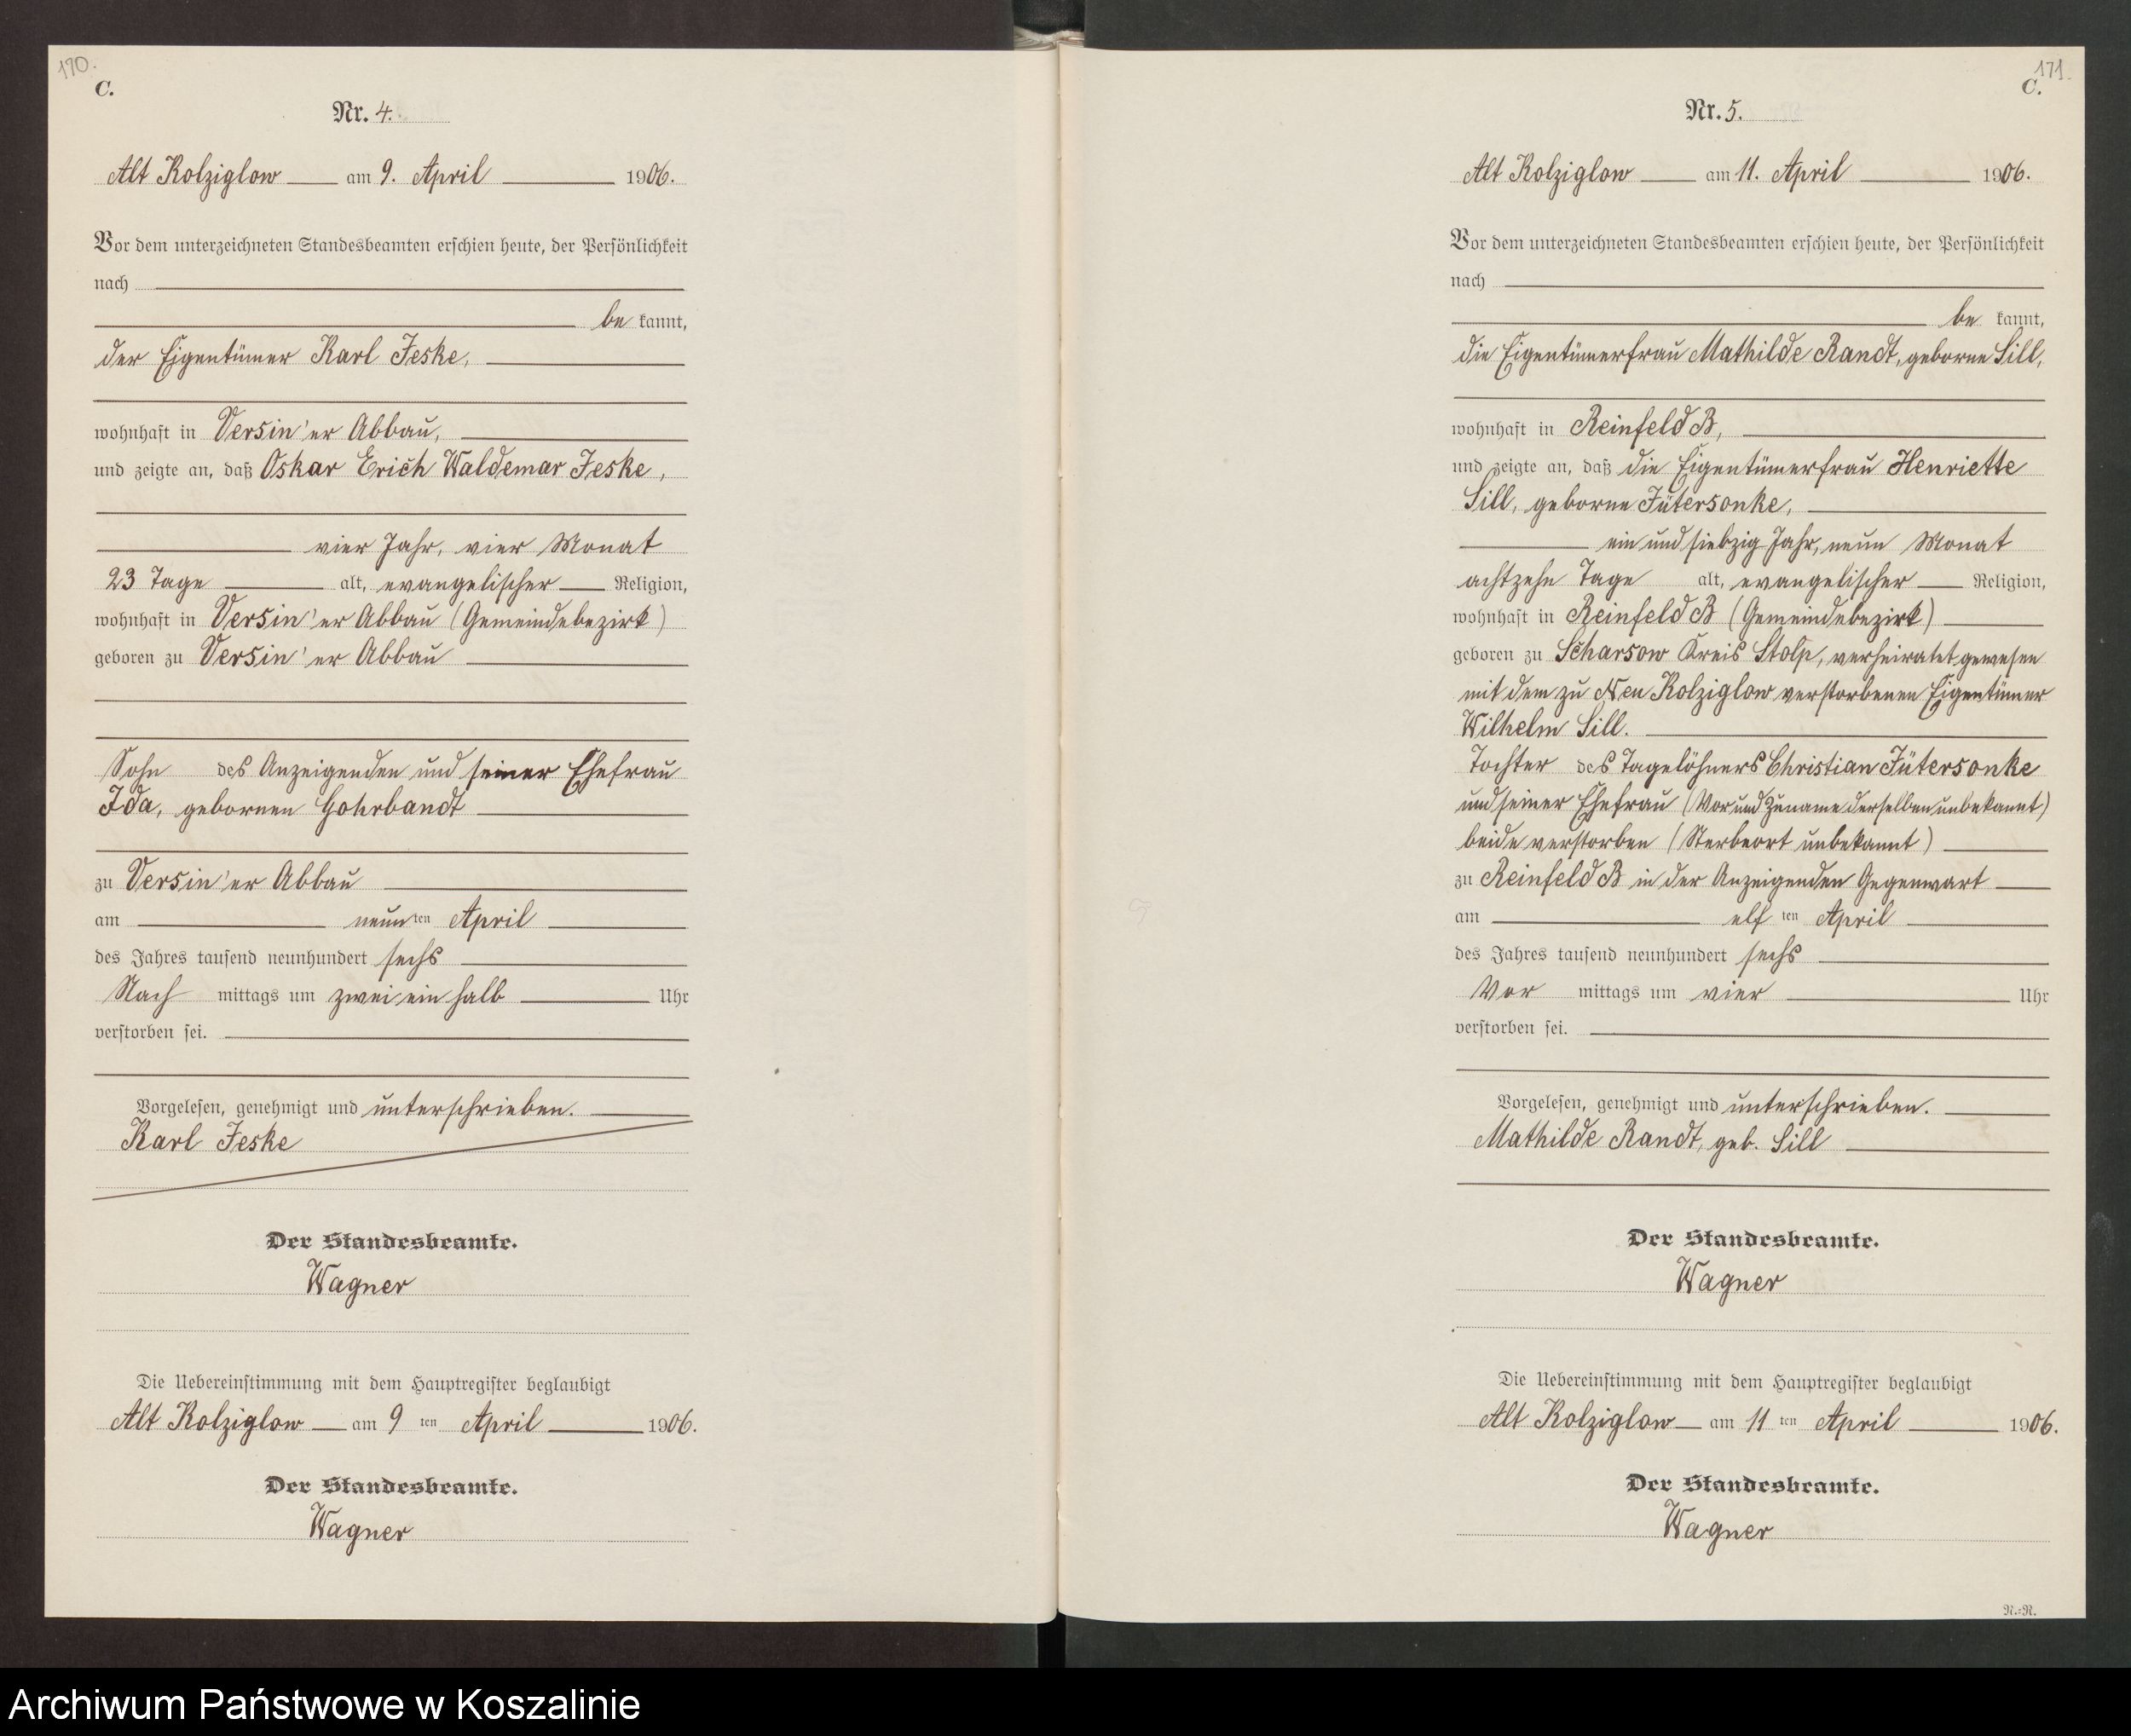 170.
C.
Nr. 4.
Alt Kolziglow am 9. April 1906.
Vor dem unterzeichneten Standesbeamten erschien heute, der Persönlichkeit
nach
be kannt,
der Eigentümer Karl Jeske,
wohnhaft in Versin'er Abbau,
und zeigte an, daß Oskar Erich Waldemar Jeske,
vier Jahr, vier Monat
23 Tage alt, evangelischer Religion,
wohnhaft in Versin'er Abbau (Gemeindebezirk)
geboren zu Versin'er Abbau
Sohn des Anzeigenden und seiner Ehefrau
Ida, gebornen Gohrbandt
zu Versin'er Abbau
am neunten April
des Jahres tausend neunhundert sechs
Nach mittags um zwei ein halb Uhr
verstorben sei.
Vorgelesen, genehmigt und unterschrieben.
Karl Jeske
Der Standesbeamte.
Wagner
Die Uebereinstimmung mit dem Hauptregister beglaubigt
Alt Kolziglow am 9 ten April 1906.
Der Standesbeamte.
Wagner
171.
C.
Nr. 5.
Alt Kolziglow am 11. April 1906.
Vor dem unterzeichneten Standesbeamten erschien heute, der Persönlichkeit
nach
be kannt,
die Eigentümerfrau Mathilde Randt, geborne Sill,
wohnhaft in Reinfeld B,
und zeigte an, daß die Eigentümerfrau Henriette
Sill, geborne Jütersonke,
ein und siebzig Jahr, neun Monat
achtzehn Tage alt, evangelischer Religion,
wohnhaft in Reinfeld B (Gemeindebezirk)
geboren zu Scharsow Kreis Stolp, verheiratet gewesen
mit dem zu Neu Kolziglow verstorbenen Eigentümer
Wilhelm Sill.
Tochter des Tagelöhners Christian Jütersonke
und seiner Ehefrau (Vor und Zuname derselben unbekannt)
beide verstorben (Sterbeort unbekannt)
zu Reinfeld B in der Anzeigenden Gegenwart
am elf ten April
des Jahres tausend neunhundert sechs
Vor mittags um vier Uhr
verstorben sei.
Vorgelesen, genehmigt und unterschrieben.
Mathilde Randt, geb. Sill
Der Standesbeamte.
Wagner
Die Uebereinstimmung mit dem Hauptregister beglaubigt
Alt Kolziglow am 11 ten April 1906.
Der Standesbeamte.
Wagner
N.=N.
Archiwum Państwowe w Koszalinie